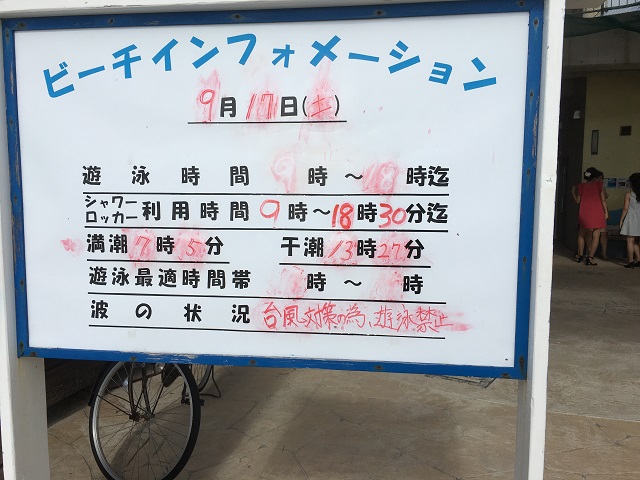 ビーチインフォメーション
9月17日(土)
遊泳時間 9時～18時迄
シャワーロッカー利用時間 9時～18時30分迄
満潮7時5分 干潮13時27分
遊泳最適時間帯 時～時
波の状況 台風対策の為、遊泳禁止